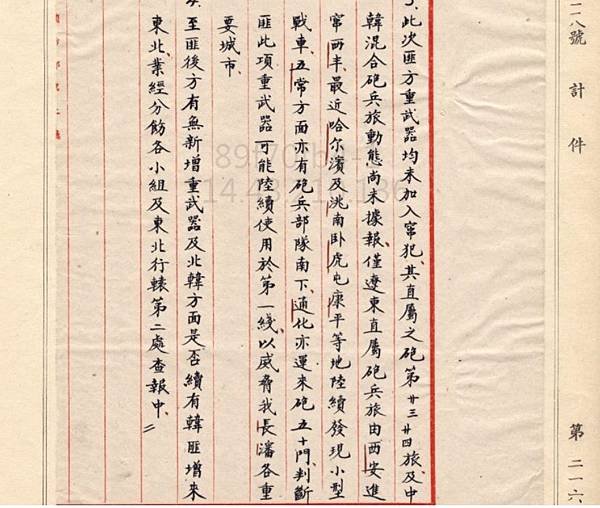 二八號 計 件 第 二一六
此次匪方重武器均未加入竄犯、其直屬之砲第廿三廿四旅及中
韓混合砲兵旅動態尚未據報、僅遼東直屬砲兵旅由西安進
窜西丰、最近哈尔濱及洮南卧虎屯康平等地陸續發現小型
戰車、五常方面亦有砲兵部隊南下、通化亦運來砲五十門、判斷
匪此項重武器可能陸續使用於第一綫、以威脅我長瀋各重
要城市、
至匪後方有無新增重武器及北韓方面是否續有韓匪增來
東北、業經分飭各小組及東北行轅第二處查報中、